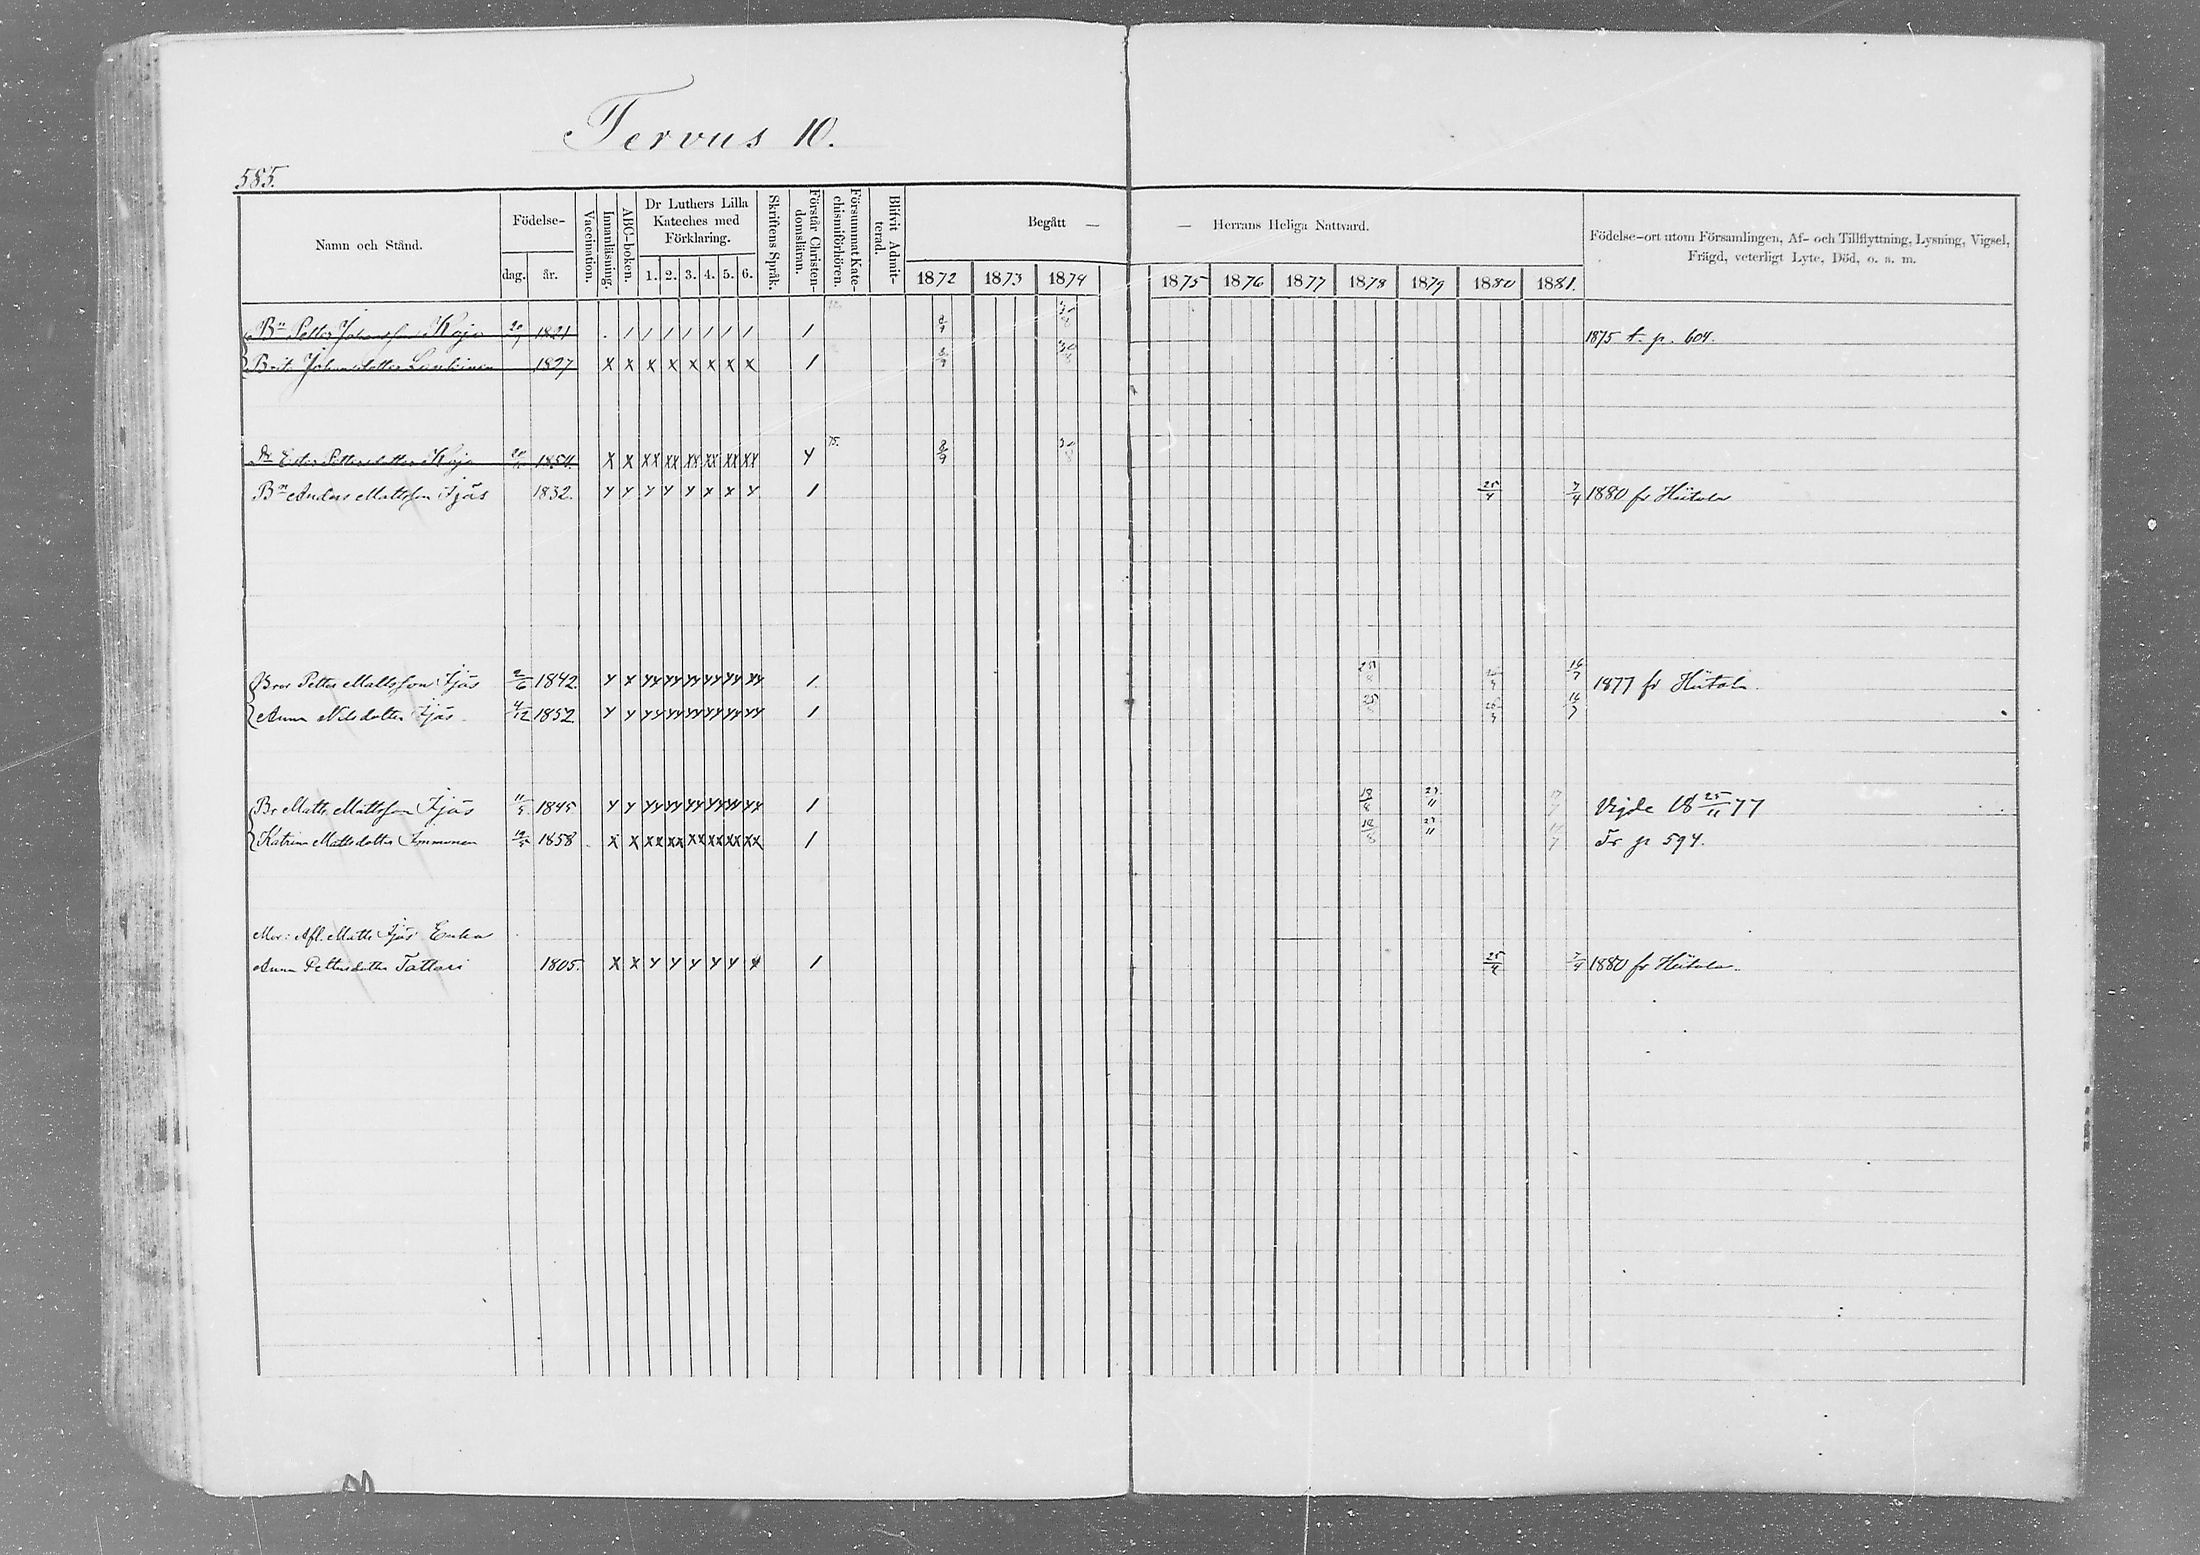 Tervus 10.
585.
Namn och Stånd. Födelse- dag. år. Vaccination. Innanläsning. ABC-boken. Dr Luthers Lilla Kateches med Förklaring. 1. 2. 3. 4. 5. 6. Skriftens Språk. Förstår Christendomsläran. Försummat Katechismiförhören. Blifvit Admitterad. Begått — — Herrans Heliga Nattvard. Födelse-ort utom Församlingen, Af- och Tillflyttning, Lysning, Vigsel,
Frägd, veterligt Lyte, Död, o. s. m.
1872 1873 1874 1875 1876 1877 1878 1879 1880 1881.
Bn Petter Johansson Kojo 1821 / / / / / / / / 1875 t. p. 604.
Brit Johansdotter 1827 X X X X X X X X /
Dr Ester Pettersdotter Kojo 1854 X X XX XX XX XX XX XX Y 75.
Bn Anders Mattsson Ijäs 1832. Y Y Y Y Y Y Y Y / 25/4 7/4 1880 fr Hiitola
Bror Petter Mattsson Ijäs 2/6 1842. Y Y YY YY YY YY YY YY / 16/7 1877 fr Hiitola.
Anna Nilsdotter Ijäs 4/12 1852 Y Y YY YY YY YY YY YY / 16/7
Br Matts Mattsson Ijäs 1845 Y Y YY YY YY YY YY YY / 18/8 Vigde 18 25/11 77
Katrina Mattsdotter Immonen 1858 X X XX XX XX XX XX XX / 18/8 Fr p 594.
Mor: Afl. Matts Ijäs Enka
Anna Pettersdotter Tattari 1805. X X Y Y Y Y Y Y / 25/4 7/4 1880 fr Hiitola.